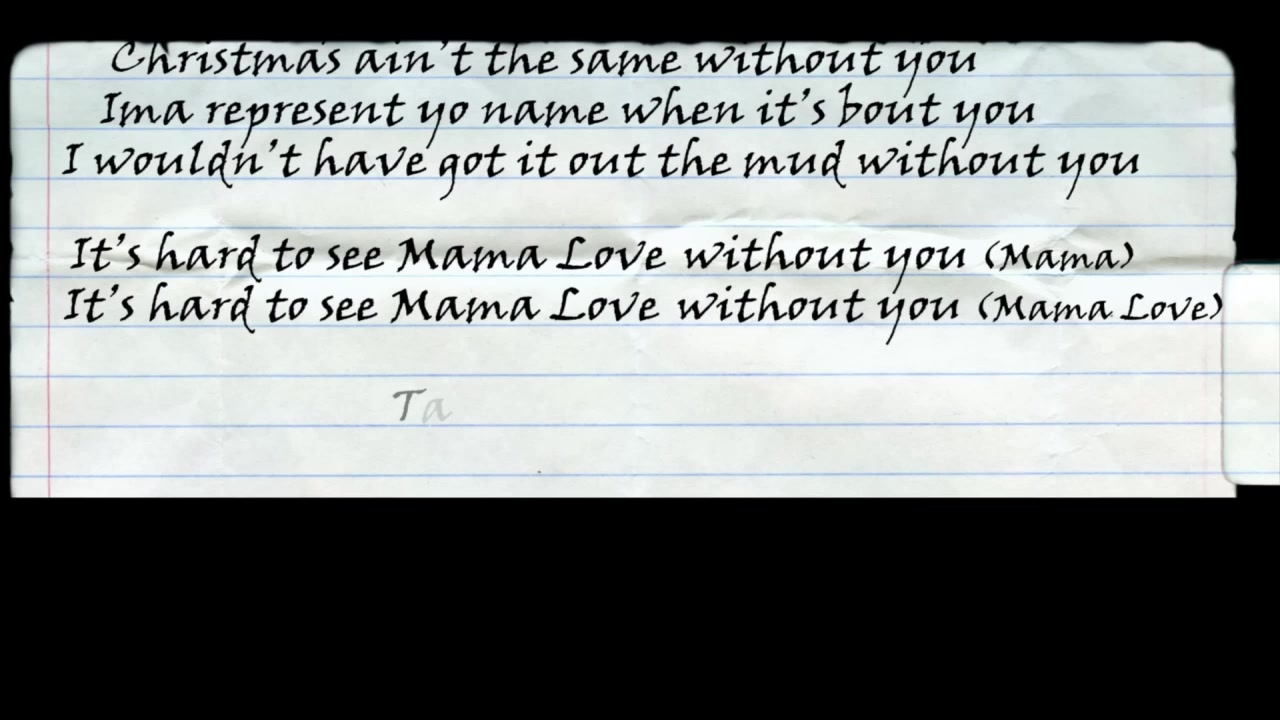 Christmas ain't the same without you
Ima represent yo name when it's bout you
I wouldn't have got it out the mud without you
It's hard to see Mama Love without you (Mama)
It's hard to see Mama Love without you (Mama Love)
Ta